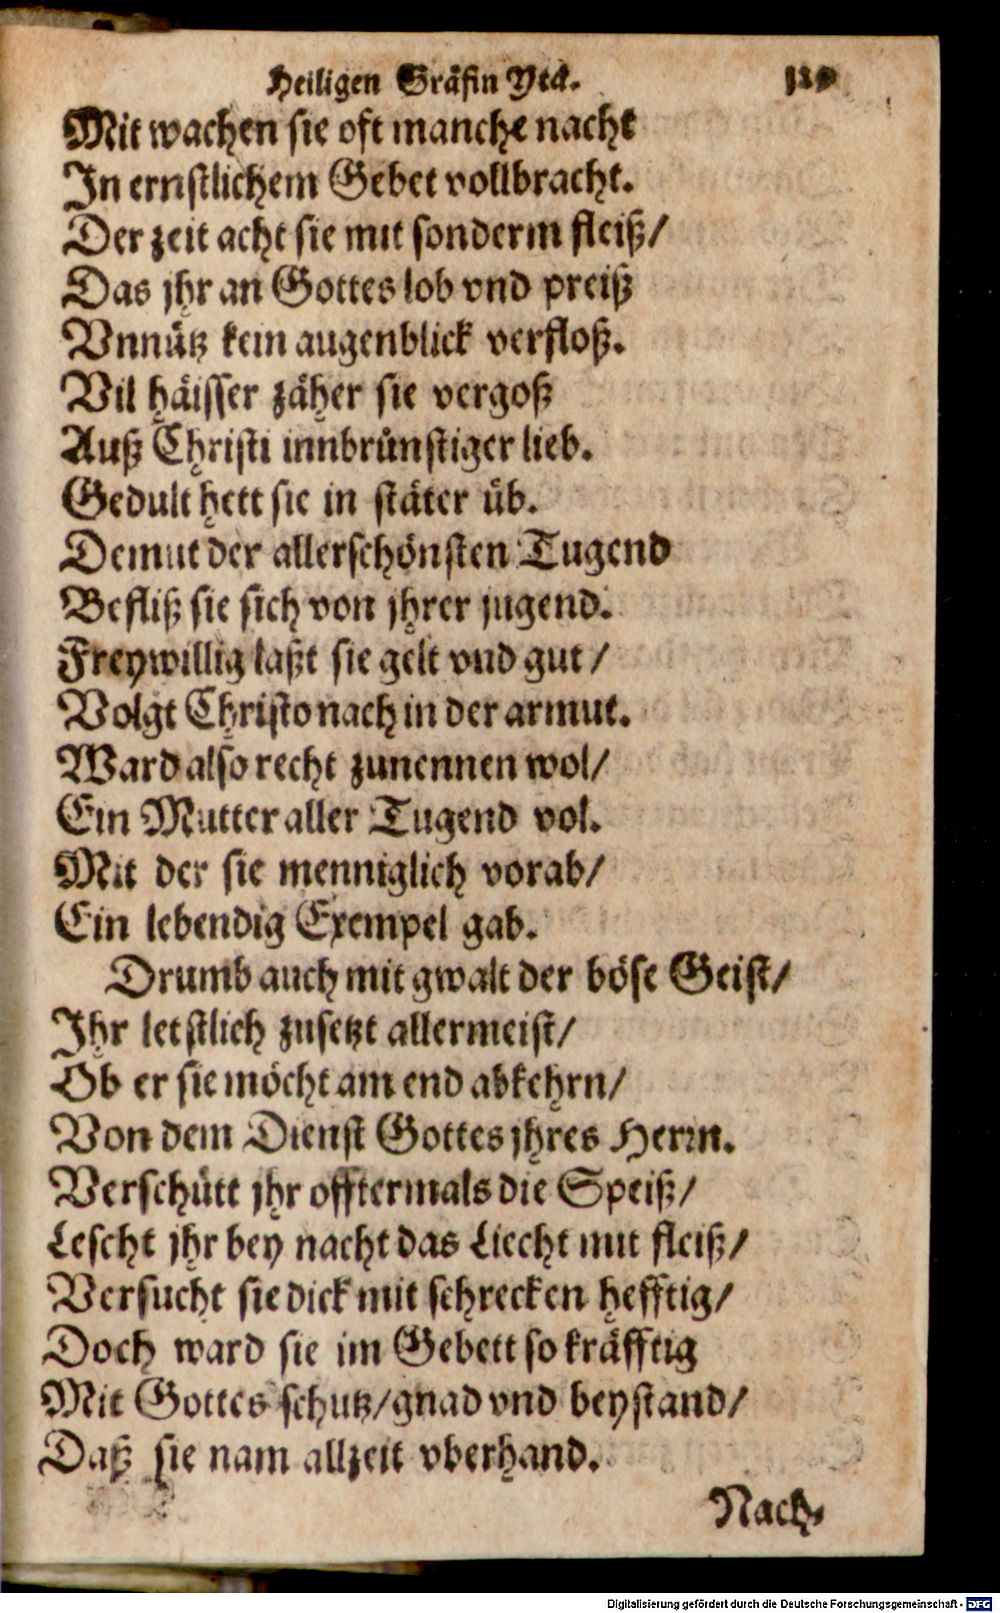 Heiligen Gräfin Yta.
Mit wachen sie oft manche nacht
In ernstlichem Gebet vollbracht.
Der zeit acht sie mit sonderm fleiß/
Das jhr an Gottes lob vnd preiß
Vnnütz kein augenblick verfloß.
Vil häisser zäher sie vergoß
Auß Christi innbrünstiger lieb.
Gedult hett sie in stäter üb.
Demut der allerschönsten Tugend
Befliß sie sich von jhrer jugend.
Freywillig laßt sie gelt vnd gut/
Volgt Christo nach in der armut.
Ward also recht zunennen wol/
Ein Mutter aller Tugend vol.
Mit der sie menniglich vorab/
Ein lebendig Exempel gab.
Drumb auch mit gwalt der böse Geist/
Ihr letstlich zusetzt allermeist/
Ob er sie möcht am end abkehrn/
Von dem Dienst Gottes jhres Herrn.
Verschütt jhr offtermals die Speiß/
Lescht jhr bey nacht das Liecht mit fleiß/
Versucht sie dick mit schrecken hefftig/
Doch ward sie im Gebett so kräfftig
Mit Gottes schutz/gnad vnd beystand/
Daß sie nam allzeit vberhand.
Nach-
Digitalisierung gefördert durch die Deutsche Forschungsgemeinschaft - DFG